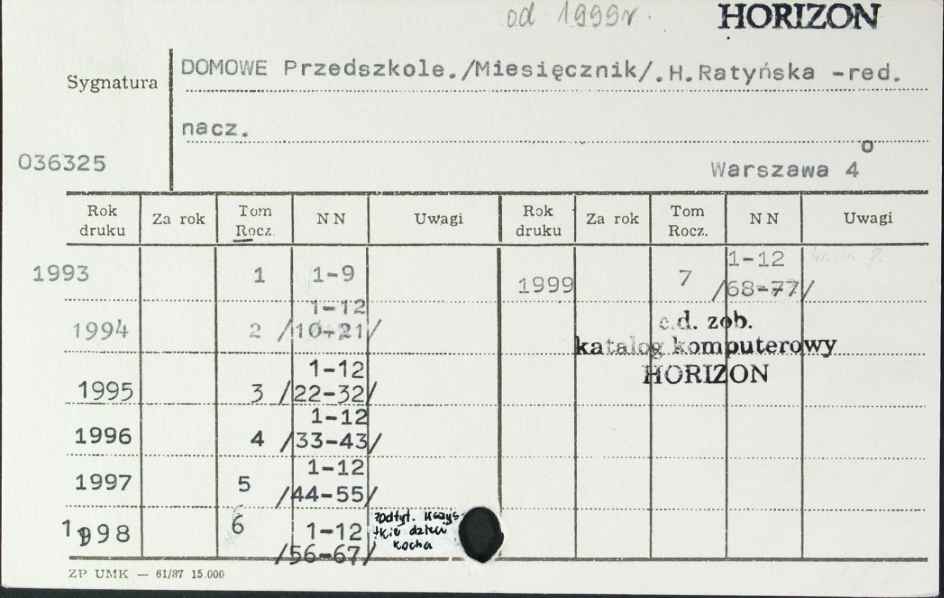 od 1999r.
HORIZON
Sygnatura
DOMOWE Przedszkole./Miesięcznik/.H.Ratyńska -red.
nacz.
036325
Warszawa 4°
Rok druku Za rok Tom Rocz. N N Uwagi Rok druku Za rok Tom Rocz. N N Uwagi
1993 1 1-9 1999 7 1-12 /68-77/
1994 2 1-12 /10-21/
c.d. zob.
katalog komputerowy
HORIZON
1995 3 1-12 /22-32/
1996 4 1-12 /33-43/
1997 5 1-12 /44-55/
1998 6 1-12 /56-67/
kocha
ZP UMK — 61/87 15.000